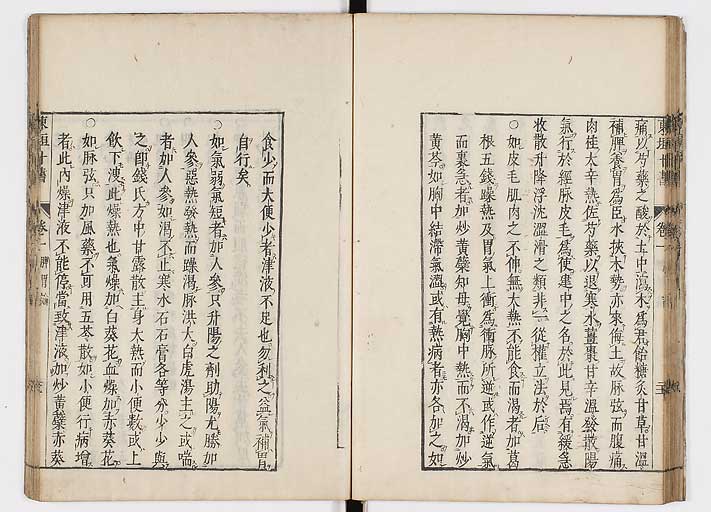 痛以芍藥之酸於土中瀉木爲君飴糖炙甘草甘溫
補脾養胃爲臣水挾木勢亦來侮土故脉弦而腹痛
肉桂大辛熱佐芍藥以退寒水薑棗甘辛溫發散陽
氣行於經脉皮毛爲使建中之名於此見焉有緩急
收散升降浮沉濇滑之類非一從權立法於后
○如皮毛肌肉之不伸無大熱不能食而渴者加葛
根五錢躁熱及胃氣上衝爲衝脉所逆或作逆氣
而裏急者加炒黃蘗知母覺胸中熱而不渴加炒
黃芩如胸中結滯氣濇或有熱病者亦各加之如
食少而大便少者津液不足也勿利之益氣補胃
自行矣
○如氣弱氣短者加人參只升陽之劑助陽尤勝加
人參惡熱發熱而躁渴脉洪大白虎湯主之或喘
者加人參如渴不止寒水石石膏各等分少少與
之即錢氏方中甘露散主身大熱而小便數或上
飲下溲此燥熱也氣燥加白葵花血燥加赤葵花
○如脉弦只加風藥不可用五苓散如小便行病增
者此內燥津液不能停當致津液加炒黃蘗赤葵
東垣十書
卷一
脾胃論